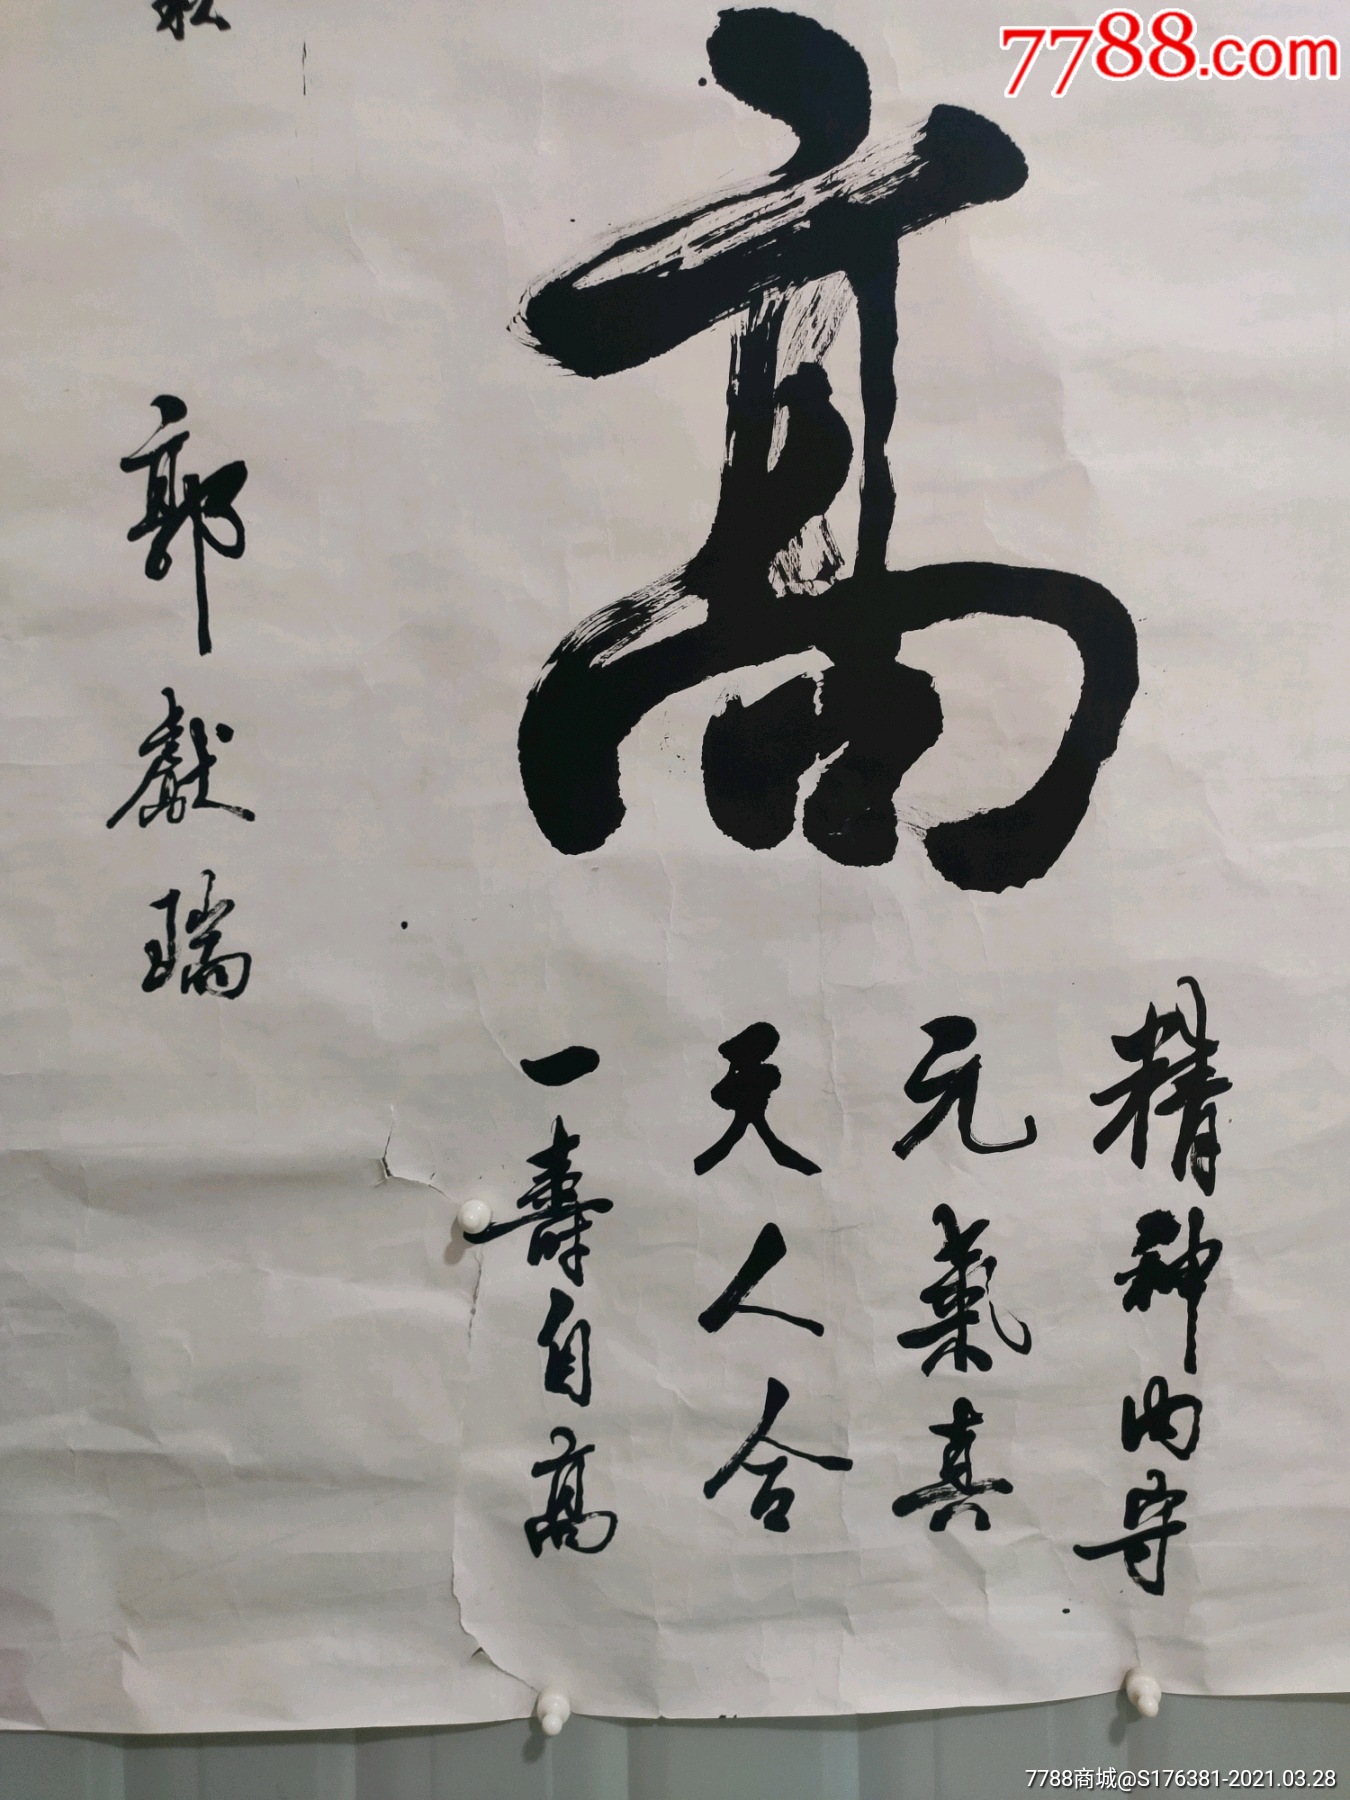 7788.com
高
精神内守
元氣真
天人合
一壽自高
秋
郭獻瑞
7788商城@S176381-2021.03.28